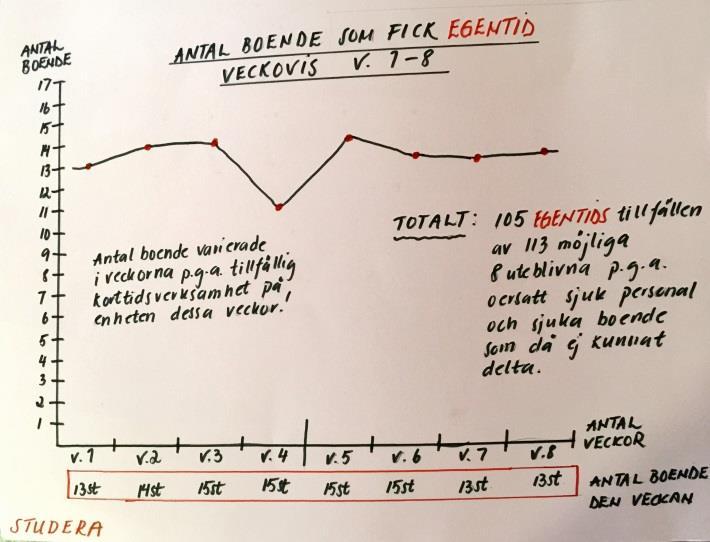 ANTAL BOENDE SOM FICK EGENTID
VECKOVIS V. 1-8
ANTAL
BOENDE
17
16
15
14
13
12
11
10
9
8
7
6
5
4
3
2
1
Antal boende varierade
i veckorna p.g.a. tillfällig
korttidsverksamhet på
enheten dessa veckor.
TOTALT: 105 EGENTIDS tillfällen
av 113 möjliga
8 uteblivna p.g.a.
oersatt sjuk personal
och sjuka boende
som då ej kunnat
delta.
V.1 V.2 V.3 V.4 V.5 V.6 V.7 V.8
ANTAL
VECKOR
13st 14st 15st 15st 15st 15st 13st 13st
ANTAL BOENDE
DEN VECKAN
STUDERA